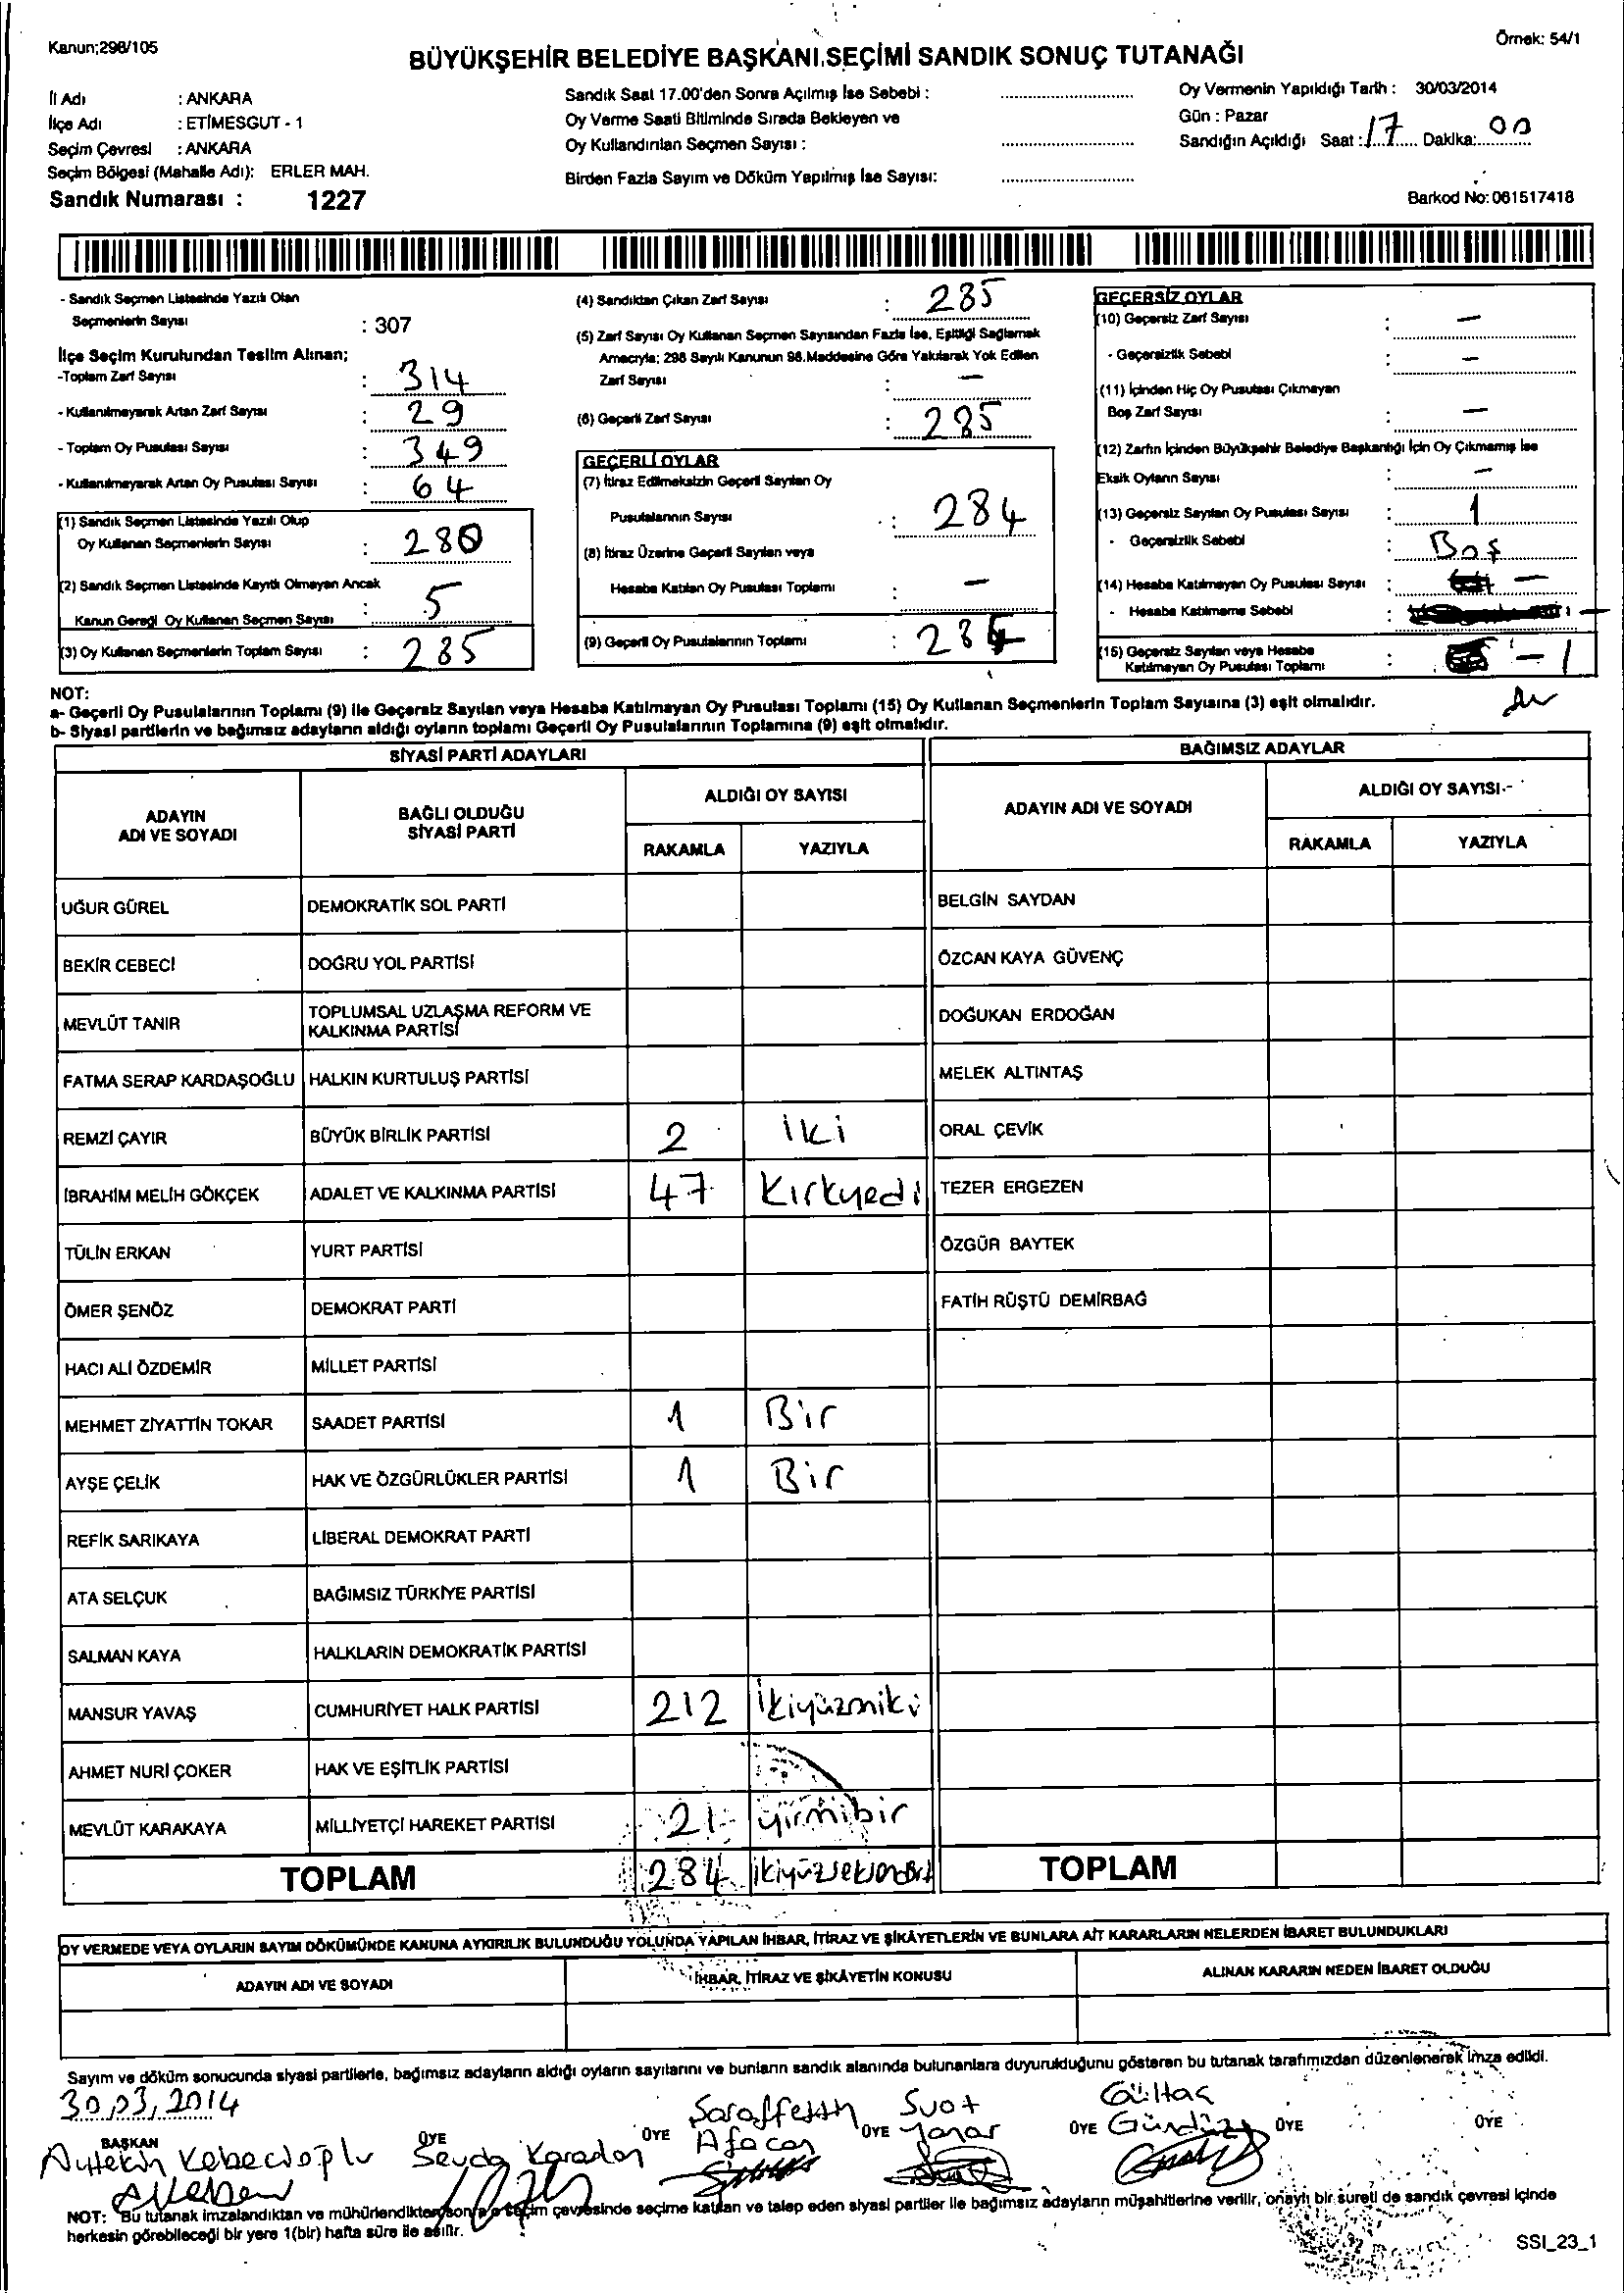 Kanun;298/105
Örnek: 54/1
BÜYÜKŞEHİR BELEDİYE BAŞKANI SEÇİMİ SANDIK SONUÇ TUTANAĞI
İl Adı : ANKARA
İlçe Adı : ETİMESGUT - 1
Seçim Çevresi : ANKARA
Seçim Bölgesi (Mahalle Adı): ERLER MAH.
Sandık Numarası : 1227
Sandık Saat 17.00'den Sonra Açılmış İse Sebebi :
Oy Verme Saati Bitiminde Sırada Bekleyen ve
Oy Kullandırılan Seçmen Sayısı :
Birden Fazla Sayım ve Döküm Yapılmış İse Sayısı:
Oy Vermenin Yapıldığı Tarih : 30/03/2014
Gün : Pazar
Sandığın Açıldığı Saat : 17 Dakika: 00
Barkod No: 061517418
- Sandık Seçmen Listesinde Yazılı Olan
Seçmenlerin Sayısı : 307
İlçe Seçim Kurulundan Teslim Alınan;
-Toplam Zarf Sayısı : 314
- Kullanılmayarak Artan Zarf Sayısı : 29
- Toplam Oy Pusulası Sayısı : 349
- Kullanılmayarak Artan Oy Pusulası Sayısı : 64
(1) Sandık Seçmen Listesinde Yazılı Olup
Oy Kullanan Seçmenlerin Sayısı : 280
(2) Sandık Seçmen Listesinde Kayıtlı Olmayan Ancak
Kanun Gereği Oy Kullanan Seçmen Sayısı : 5
(3) Oy Kullanan Seçmenlerin Toplam Sayısı : 285
(4) Sandıktan Çıkan Zarf Sayısı : 285
(5) Zarf Sayısı Oy Kullanan Seçmen Sayısından Fazla İse, Eşitliği Sağlamak
Amacıyla; 298 Sayılı Kanunun 98.Maddesine Göre Yakılarak Yok Edilen
Zarf Sayısı : —
(6) Geçerli Zarf Sayısı : 285
GEÇERLİ OYLAR
(7) İtiraz Edilmeksizin Geçerli Sayılan Oy
Pusulalarının Sayısı : 284
(8) İtiraz Üzerine Geçerli Sayılan veya
Hesaba Katılan Oy Pusulası Toplamı : —
(9) Geçerli Oy Pusulalarının Toplamı : 284
GEÇERSİZ OYLAR
(10) Geçersiz Zarf Sayısı : —
- Geçersizlik Sebebi : —
(11) İçinden Hiç Oy Pusulası Çıkmayan
Boş Zarf Sayısı : —
(12) Zarfın İçinden Büyükşehir Belediye Başkanlığı İçin Oy Çıkmamış İse
Eksik Oyların Sayısı : —
(13) Geçersiz Sayılan Oy Pusulası Sayısı : 1
- Geçersizlik Sebebi : Boş
(14) Hesaba Katılmayan Oy Pusulası Sayısı : —
- Hesaba Katılmama Sebebi : —
(15) Geçersiz Sayılan veya Hesaba
Katılmayan Oy Pusulası Toplamı : - 1
NOT:
a- Geçerli Oy Pusulalarının Toplamı (9) ile Geçersiz Sayılan veya Hesaba Katılmayan Oy Pusulası Toplamı (15) Oy Kullanan Seçmenlerin Toplam Sayısına (3) eşit olmalıdır.
b- Siyasi partilerin ve bağımsız adayların aldığı oyların toplamı Geçerli Oy Pusulalarının Toplamına (9) eşit olmalıdır.
SİYASİ PARTİ ADAYLARI
BAĞIMSIZ ADAYLAR
ADAYIN
ADI VE SOYADI
BAĞLI OLDUĞU
SİYASİ PARTİ
ALDIĞI OY SAYISI
RAKAMLA YAZIYLA
ADAYIN ADI VE SOYADI
ALDIĞI OY SAYISI
RAKAMLA YAZIYLA
UĞUR GÜREL DEMOKRATİK SOL PARTİ BELGİN SAYDAN
BEKİR CEBECİ DOĞRU YOL PARTİSİ ÖZCAN KAYA GÜVENÇ
MEVLÜT TANIR TOPLUMSAL UZLAŞMA REFORM VE
KALKINMA PARTİSİ DOĞUKAN ERDOĞAN
FATMA SERAP KARDAŞOĞLU HALKIN KURTULUŞ PARTİSİ MELEK ALTINTAŞ
REMZİ ÇAYIR BÜYÜK BİRLİK PARTİSİ 2 iki ORAL ÇEVİK
İBRAHİM MELİH GÖKÇEK ADALET VE KALKINMA PARTİSİ 47 Kırkyedi TEZER ERGEZEN
TÜLİN ERKAN YURT PARTİSİ ÖZGÜR BAYTEK
ÖMER ŞENÖZ DEMOKRAT PARTİ FATİH RÜŞTÜ DEMİRBAĞ
HACI ALİ ÖZDEMİR MİLLET PARTİSİ
MEHMET ZİYATTİN TOKAR SAADET PARTİSİ 1 Bir
AYŞE ÇELİK HAK VE ÖZGÜRLÜKLER PARTİSİ 1 Bir
REFİK SARIKAYA LİBERAL DEMOKRAT PARTİ
ATA SELÇUK BAĞIMSIZ TÜRKİYE PARTİSİ
SALMAN KAYA HALKLARIN DEMOKRATİK PARTİSİ
MANSUR YAVAŞ CUMHURİYET HALK PARTİSİ 212
AHMET NURİ ÇOKER HAK VE EŞİTLİK PARTİSİ
MEVLÜT KARAKAYA MİLLİYETÇİ HAREKET PARTİSİ 21 yirmibir
TOPLAM 284 TOPLAM
OY VERMEDE VEYA OYLARIN SAYIM DÖKÜMÜNDE KANUNA AYKIRILIK BULUNDUĞU YOLUNDA YAPILAN İHBAR, İTİRAZ VE ŞİKÂYETLERİN VE BUNLARA AİT KARARLARIN NELERDEN İBARET BULUNDUKLARI
ADAYIN ADI VE SOYADI İHBAR, İTİRAZ VE ŞİKÂYETİN KONUSU ALINAN KARARIN NEDEN İBARET OLDUĞU
Sayım ve döküm sonucunda siyasi partilerle, bağımsız adayların aldığı oyların sayılarını ve bunların sandık alanında bulunanlara duyurulduğunu gösteren bu tutanak tarafımızdan düzenlenerek imza edildi.
30,03,2014
BAŞKAN ÜYE ÜYE ÜYE ÜYE ÜYE ÜYE
Aytekin Kebecioğlu
Seyda Karadan
Afacan
Suat
Gültaç
Gündüz
NOT: Bu tutanak imzalandıktan ve mühürlendikten sonra o seçim çevresinde seçime katılan ve talep eden siyasi partiler ile bağımsız adayların müşahitlerine verilir, onaylı bir sureti de sandık çevresi içinde
herkesin görebileceği bir yere 1(bir) hafta süre ile asılır.
SSI_23_1